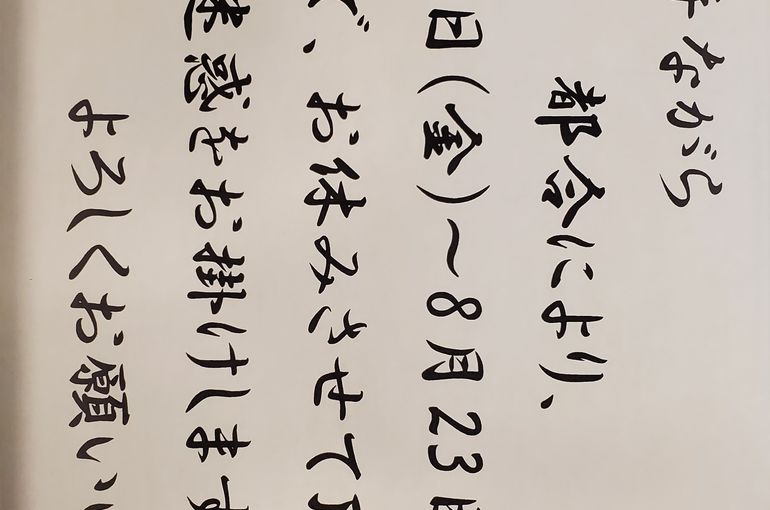 手ながら
都合により、
日(金)〜8月23日
で、お休みさせて
迷惑をお掛けします
よろしくお願いい